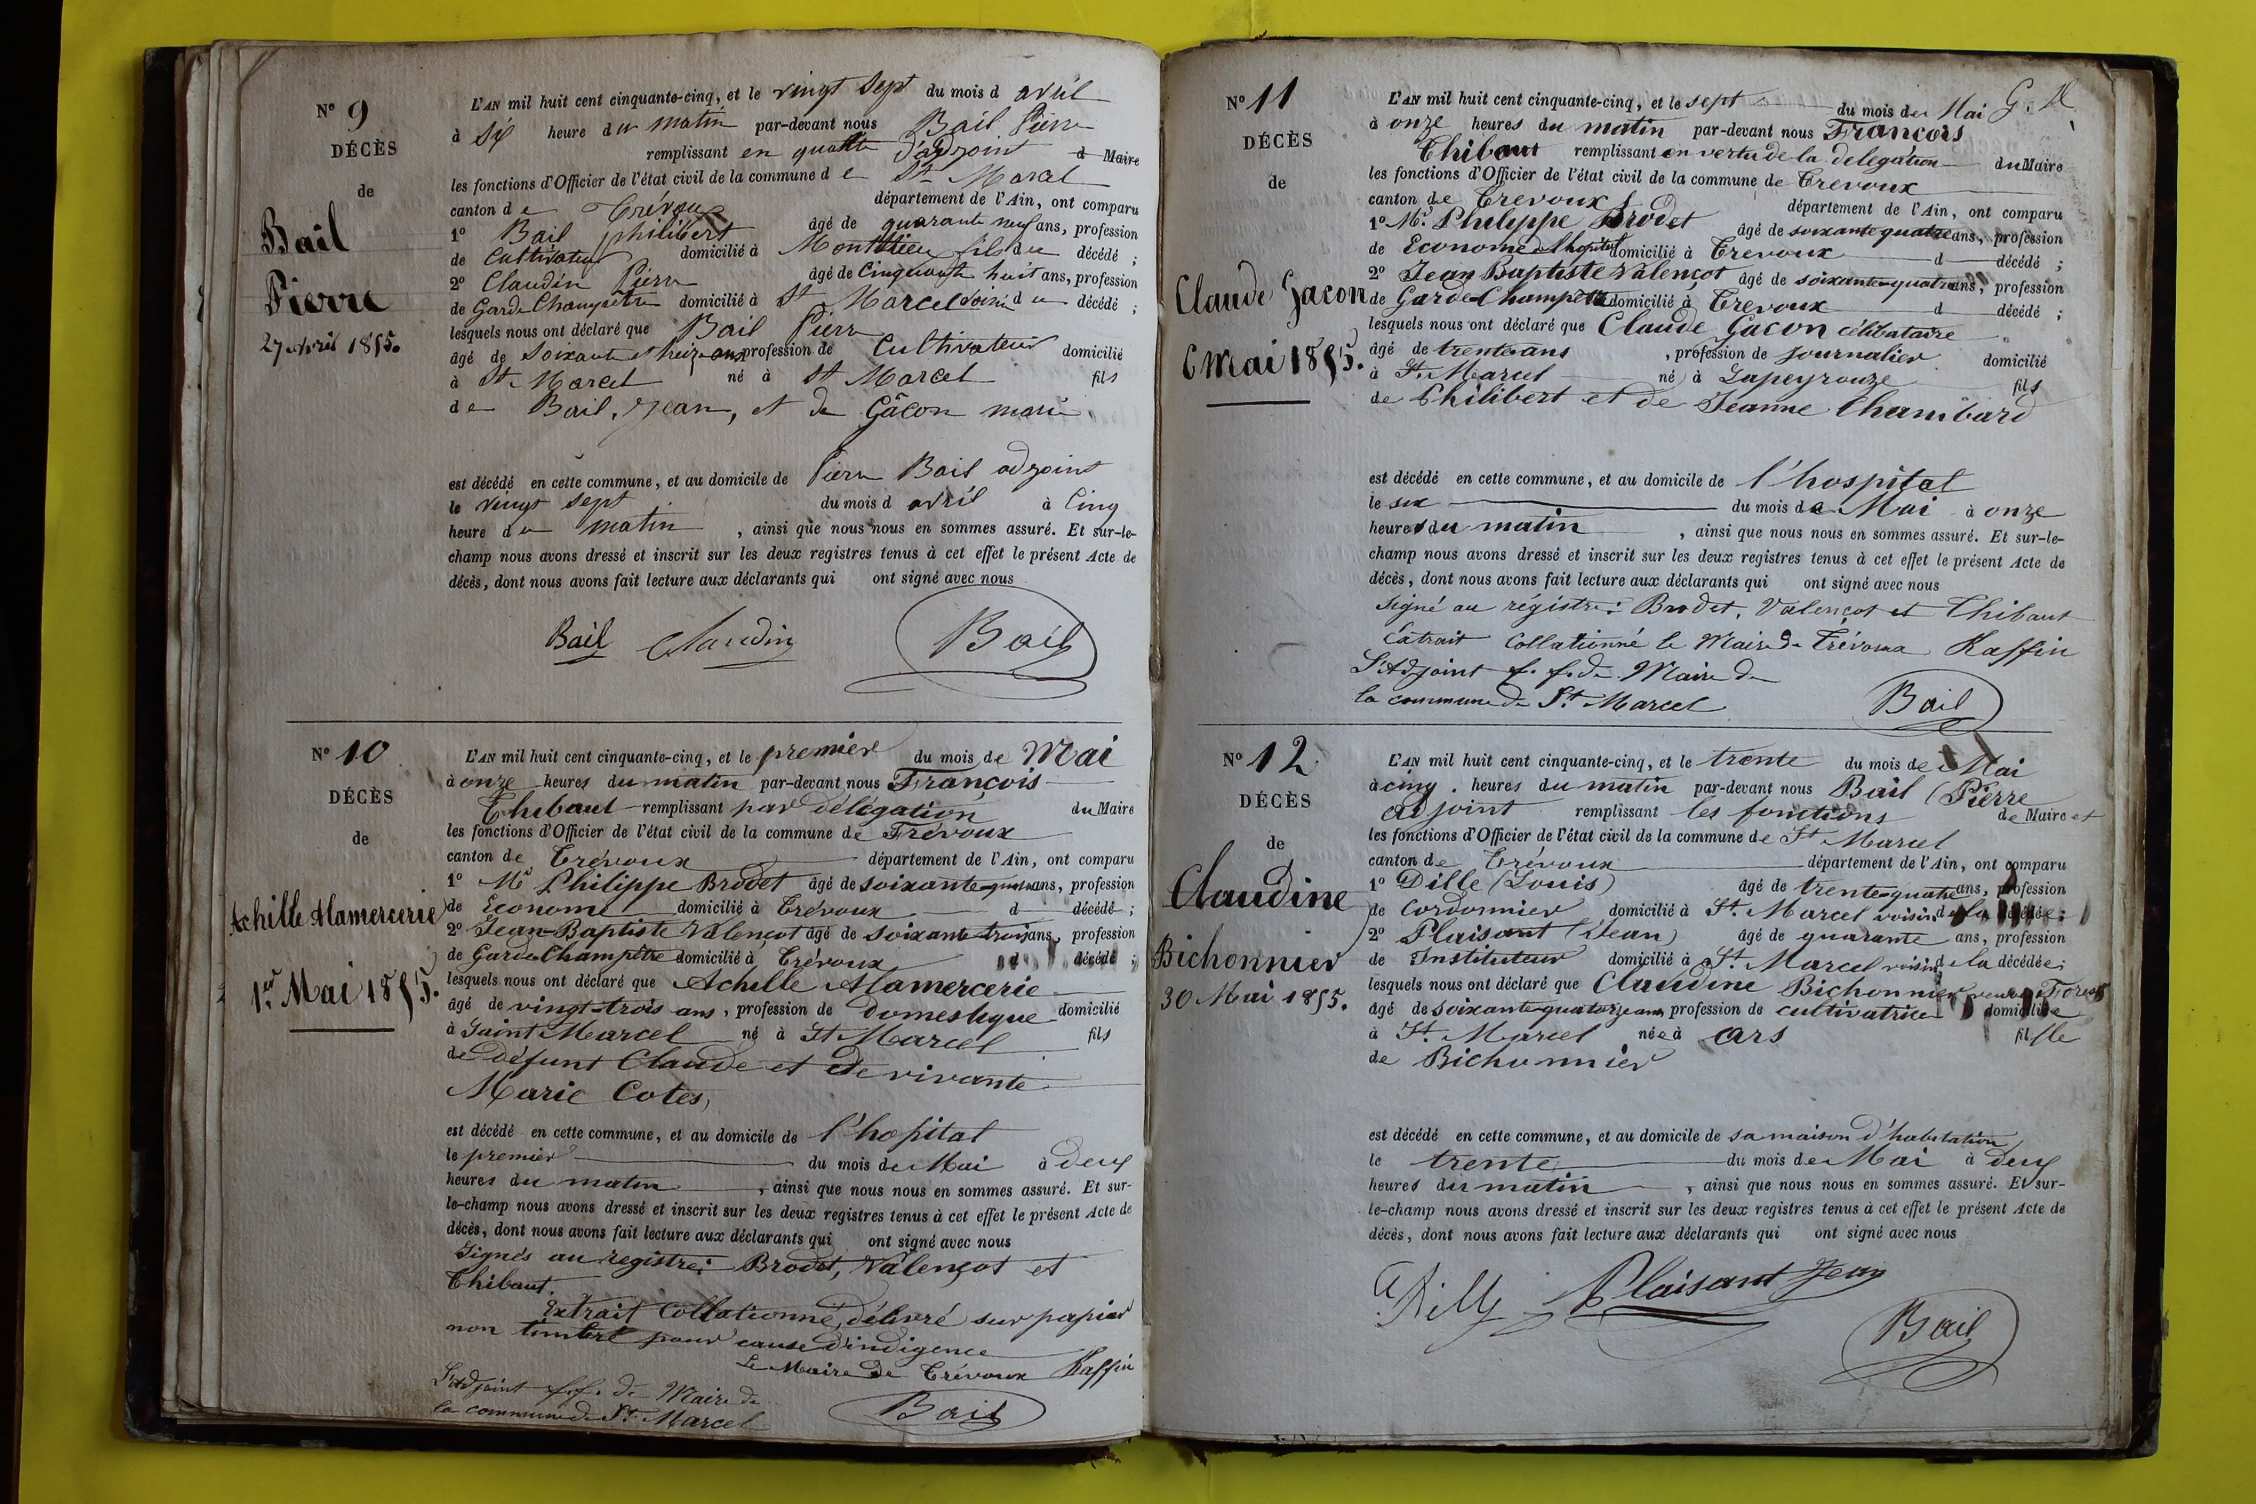 N° 9
DÉCÈS
de
Bail
Pierre
27 avril 1855.
L'AN mil huit cent cinquante-cinq, et le vingt sept du mois d avril
à six heure du matin par-devant nous Bail Pierre
remplissant en qualité d'adjoint d Maire
les fonctions d'Officier de l'état civil de la commune de St Marcel
canton de Trévoux département de l'Ain, ont comparu
1° Bail philibert âgé de quarante neuf ans, profession
de Cultivateur domicilié à Monthieu fils du décédé ;
2° Claudin Pierre âgé de Cinquante huit ans, profession
de Garde Champêtre domicilié à St Marcel voisin du décédé ;
lesquels nous ont déclaré que Bail Pierre
âgé de Soixante et treize ans profession de Cultivateur domicilié
à St Marcel né à St Marcel fils
de Bail, Jean, et de Gâcon marie
est décédé en cette commune, et au domicile de Pierre Bail adjoint
le vingt sept du mois d avril à Cinq
heure du matin , ainsi que nous nous en sommes assuré. Et sur-le-
champ nous avons dressé et inscrit sur les deux registres tenus à cet effet le présent Acte de
décès, dont nous avons fait lecture aux déclarants qui ont signé avec nous
Bail Claudin Bail
N° 10
DÉCÈS
de
Achille Alamercerie
1er Mai 1855.
L'AN mil huit cent cinquante-cinq, et le premier du mois de Mai
à onze heures du matin par-devant nous François
Thibaut remplissant par délégation du Maire
les fonctions d'Officier de l'état civil de la commune de Trévoux
canton de Trévoux département de l'Ain, ont comparu
1° Mr Philippe Brodet âgé de soixante-quatre ans, profession
de Econome domicilié à Trévoux d décédé ;
2° Jean-Baptiste Valençot âgé de soixante-trois ans, profession
de Garde Champêtre domicilié à Trévoux d décédé ;
lesquels nous ont déclaré que Achille Alamercerie
âgé de vingt-trois ans, profession de Domestique domicilié
à Saint Marcel né à St Marcel fils
de défunt Claude et de vivante
Marie Cotes,
est décédé en cette commune, et au domicile de l'hopital
le premier du mois de Mai à deux
heures du matin , ainsi que nous nous en sommes assuré. Et sur-
le-champ nous avons dressé et inscrit sur les deux registres tenus à cet effet le présent Acte de
décès, dont nous avons fait lecture aux déclarants qui ont signé avec nous
Signés au registre: Brodet, Valençot et
Thibaut.
Extrait Collationné, délivré sur papier
non timbré pour cause d'indigence
Le Maire de Trévoux Raffin
L'Adjoint f.f. de Maire de
la commune de St. Marcel Bail
G. M
N° 11
DÉCÈS
de
Claude Gacon
6 Mai 1855.
L'AN mil huit cent cinquante-cinq, et le sept du mois de Mai
à onze heures du matin par-devant nous François
Thibaut remplissant en vertu de la delegation du Maire
les fonctions d'Officier de l'état civil de la commune de Trevoux
canton de Trevoux département de l'Ain, ont comparu
1° Mr. Philippe Brodet âgé de soixante quatre ans, profession
de Econome d l'hopital domicilié à Trevoux d décédé ;
2° Jean Baptiste Valençot âgé de soixante-quatre ans, profession
de Garde-Champêtre domicilié à Trevoux d décédé ;
lesquels nous ont déclaré que Claude Gacon célibataire
âgé de trente ans , profession de journalier domicilié
à St. Marcel né à Lapeyrouze fils
de Philibert et de Jeanne Chambard
est décédé en cette commune, et au domicile de l'hospital
le six du mois de Mai à onze
heures du matin , ainsi que nous nous en sommes assuré. Et sur-le-
champ nous avons dressé et inscrit sur les deux registres tenus à cet effet le présent Acte de
décès, dont nous avons fait lecture aux déclarants qui ont signé avec nous
signé au régistre: Brodet, Valençot et Thibaut
Extrait Collationné le Maire de Trévoux Raffin
L'Adjoint f. f. de Maire de
la commune de St. Marcel Bail
N° 12
DÉCÈS
de
Claudine
Bichonnier
30 Mai 1855.
L'AN mil huit cent cinquante-cinq, et le trente du mois de Mai
à cinq heures du matin par-devant nous Bail (Pierre
adjoint remplissant les fonctions de Maire et
les fonctions d'Officier de l'état civil de la commune de St Marcel
canton de Trévoux département de l'Ain, ont comparu
1° Dille (Louis) âgé de trente-quatre ans, profession
de Cordonnier domicilié à St. Marcel voisin de la décédée ;
2° Plaisant (Jean) âgé de quarante ans, profession
de Instituteur domicilié à St. Marcel voisin de la décédée;
lesquels nous ont déclaré que Claudine Bichonnier veuve
âgé de soixante-quatorze ans profession de cultivatrice domiciliée
à St. Marcel née à Ars fille
de Bichonnier
est décédé en cette commune, et au domicile de sa maison d'habitation
le trente du mois de Mai à deux
heures du matin , ainsi que nous nous en sommes assuré. Et sur-
le-champ nous avons dressé et inscrit sur les deux registres tenus à cet effet le présent Acte de
décès, dont nous avons fait lecture aux déclarants qui ont signé avec nous
Plaisant Jean
Bail